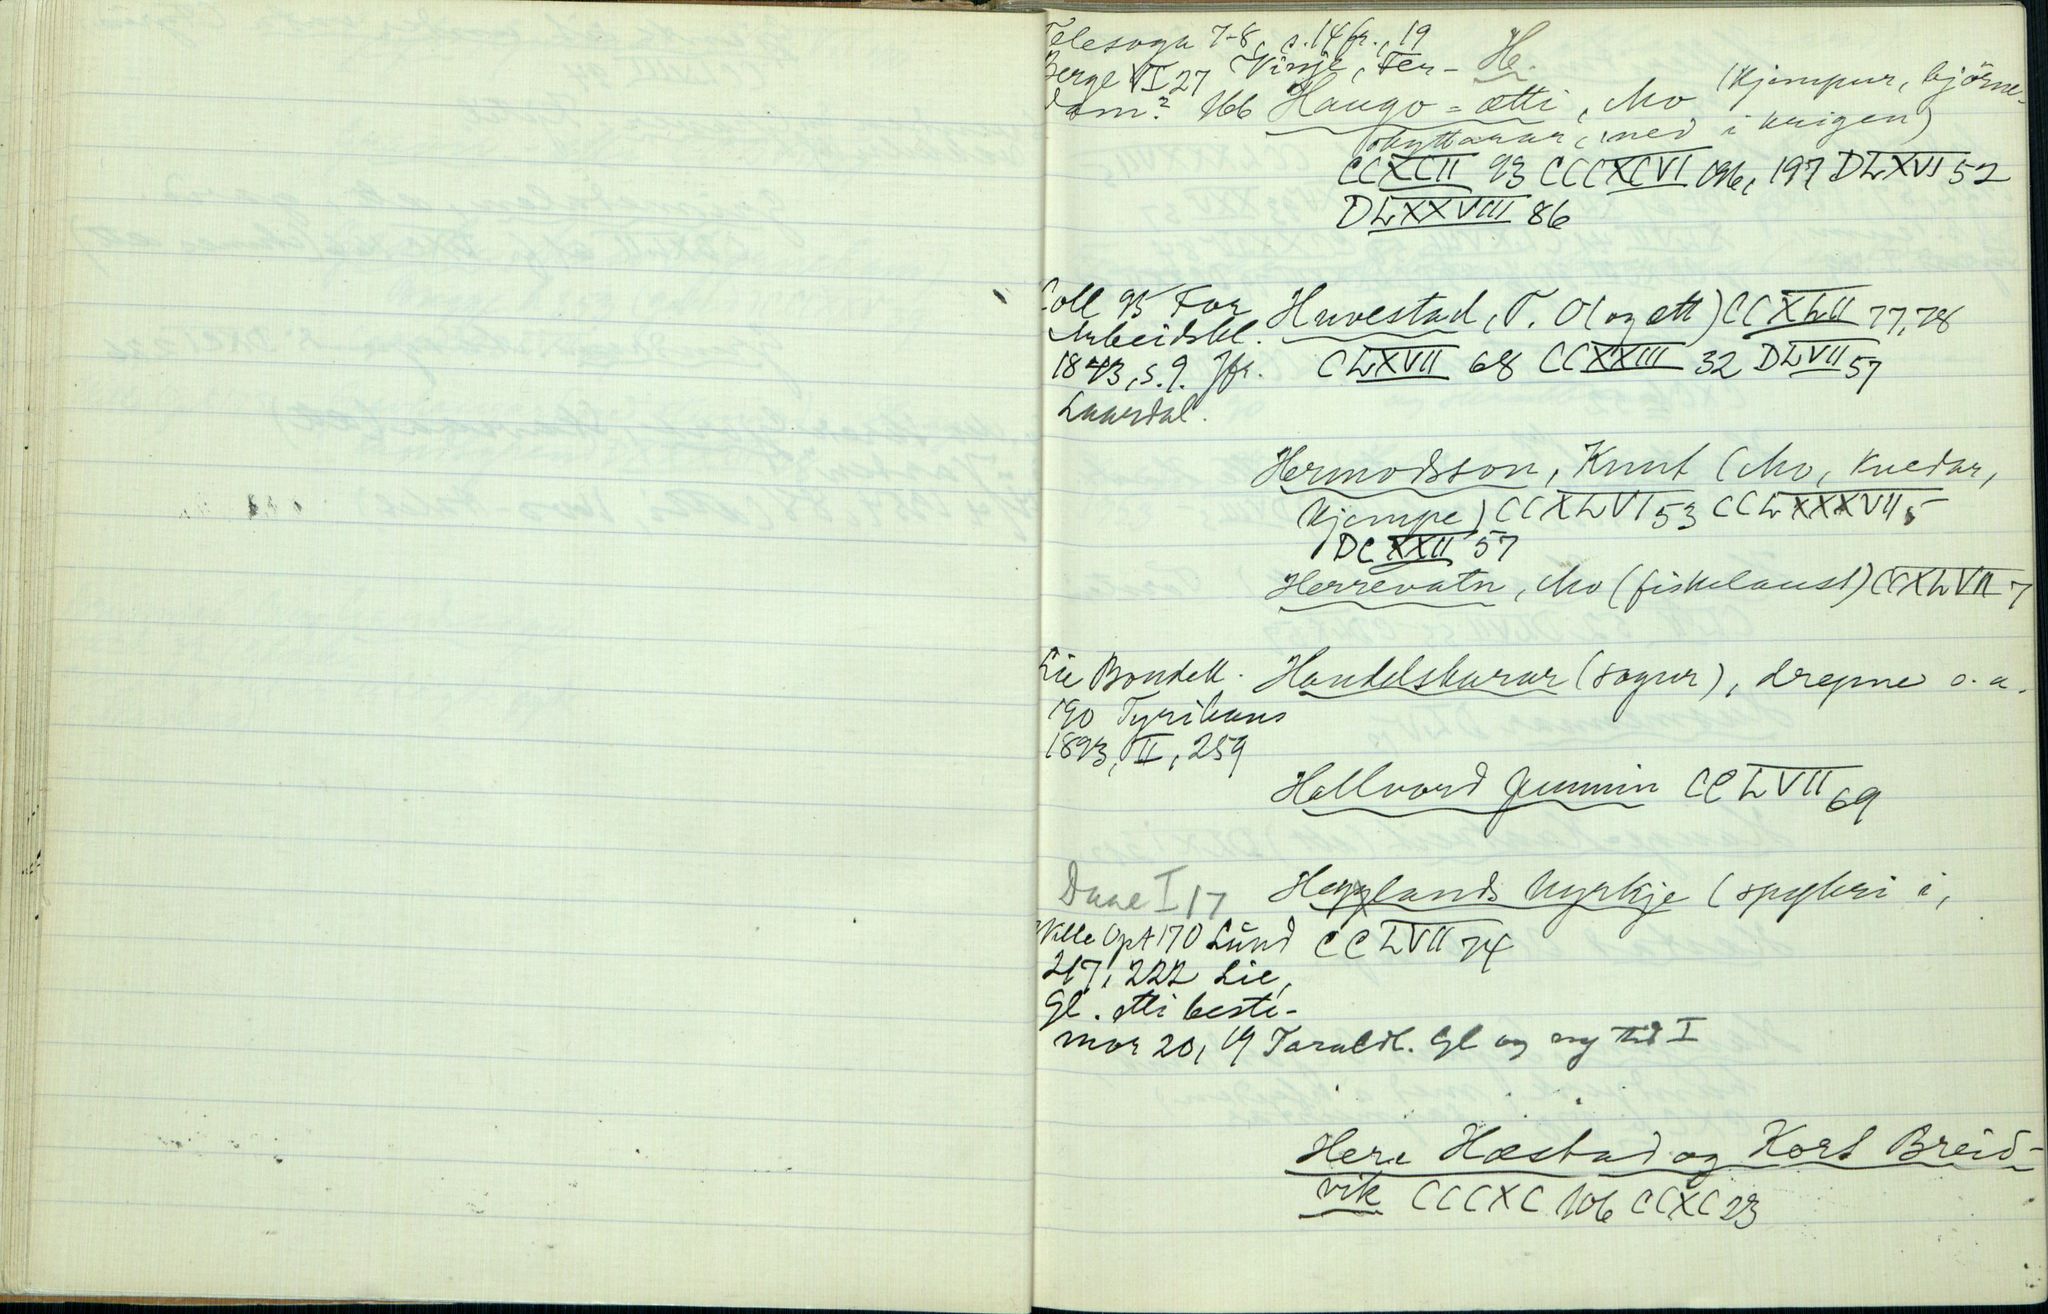 Telesoga 7-8, s. 14 fr., 19
He.
Berge VI 27 Vinje, Fer-
dam? 166 Haugo-ætti, Mo (kjempur, björne-
skyttarar, med i krigen)
CCXCII 93 CCCXCVI 196, 197 DLXVI 52
DLXXVIII 86
Coll 95 For
Arbeidskl.
1873, s. 9. Jfr.
Laardal.
Huvestad, T. O (og ætt) CCXLII 77, 78
CLXVII 68 CCXXIII 32 DLVII 57
Hermodsson, Knut (Mo, kvedar,
kjempe) CCXLVI 53 CCLXXXVII 5
DCXXII 57
Herrevatn, Mo (fiskelaust) CCXLVII 7
Lie Bondek.
190 Tyrihans
1893, II, 259
Handelskarar (sogur), drepne o. a.
Hallvord Gunnin CCLVII 69
Daae I 17
Hegglands kyrkje (spykeri i,
CCLVII 74
Opt 170 Lund
217, 222 Lie,
Gl. etti beste-
mor 20, 19 Taraldl. Gl og ny tid I
Here Hæstad og Kort Breid-
vik CCCXC 106 CCXC 23